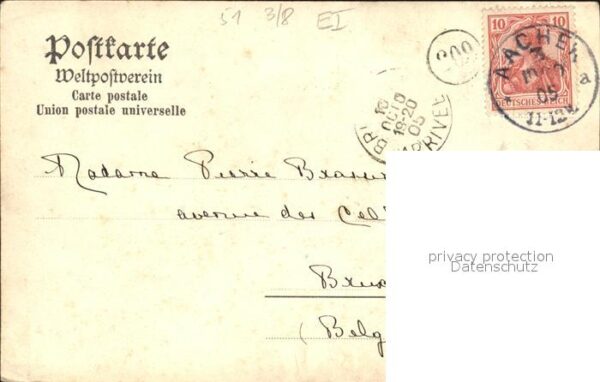 51 3/8 EI
Postkarte
Weltpostverein
Carte postale
Union postale universelle
10 10
DEUTSCHES REICH
AACHEN
05
11-12V
a
10
OCTO
19-20
05
Madame Pierre
avenue des Cel
Brux
(Belg
privacy protection
Datenschutz